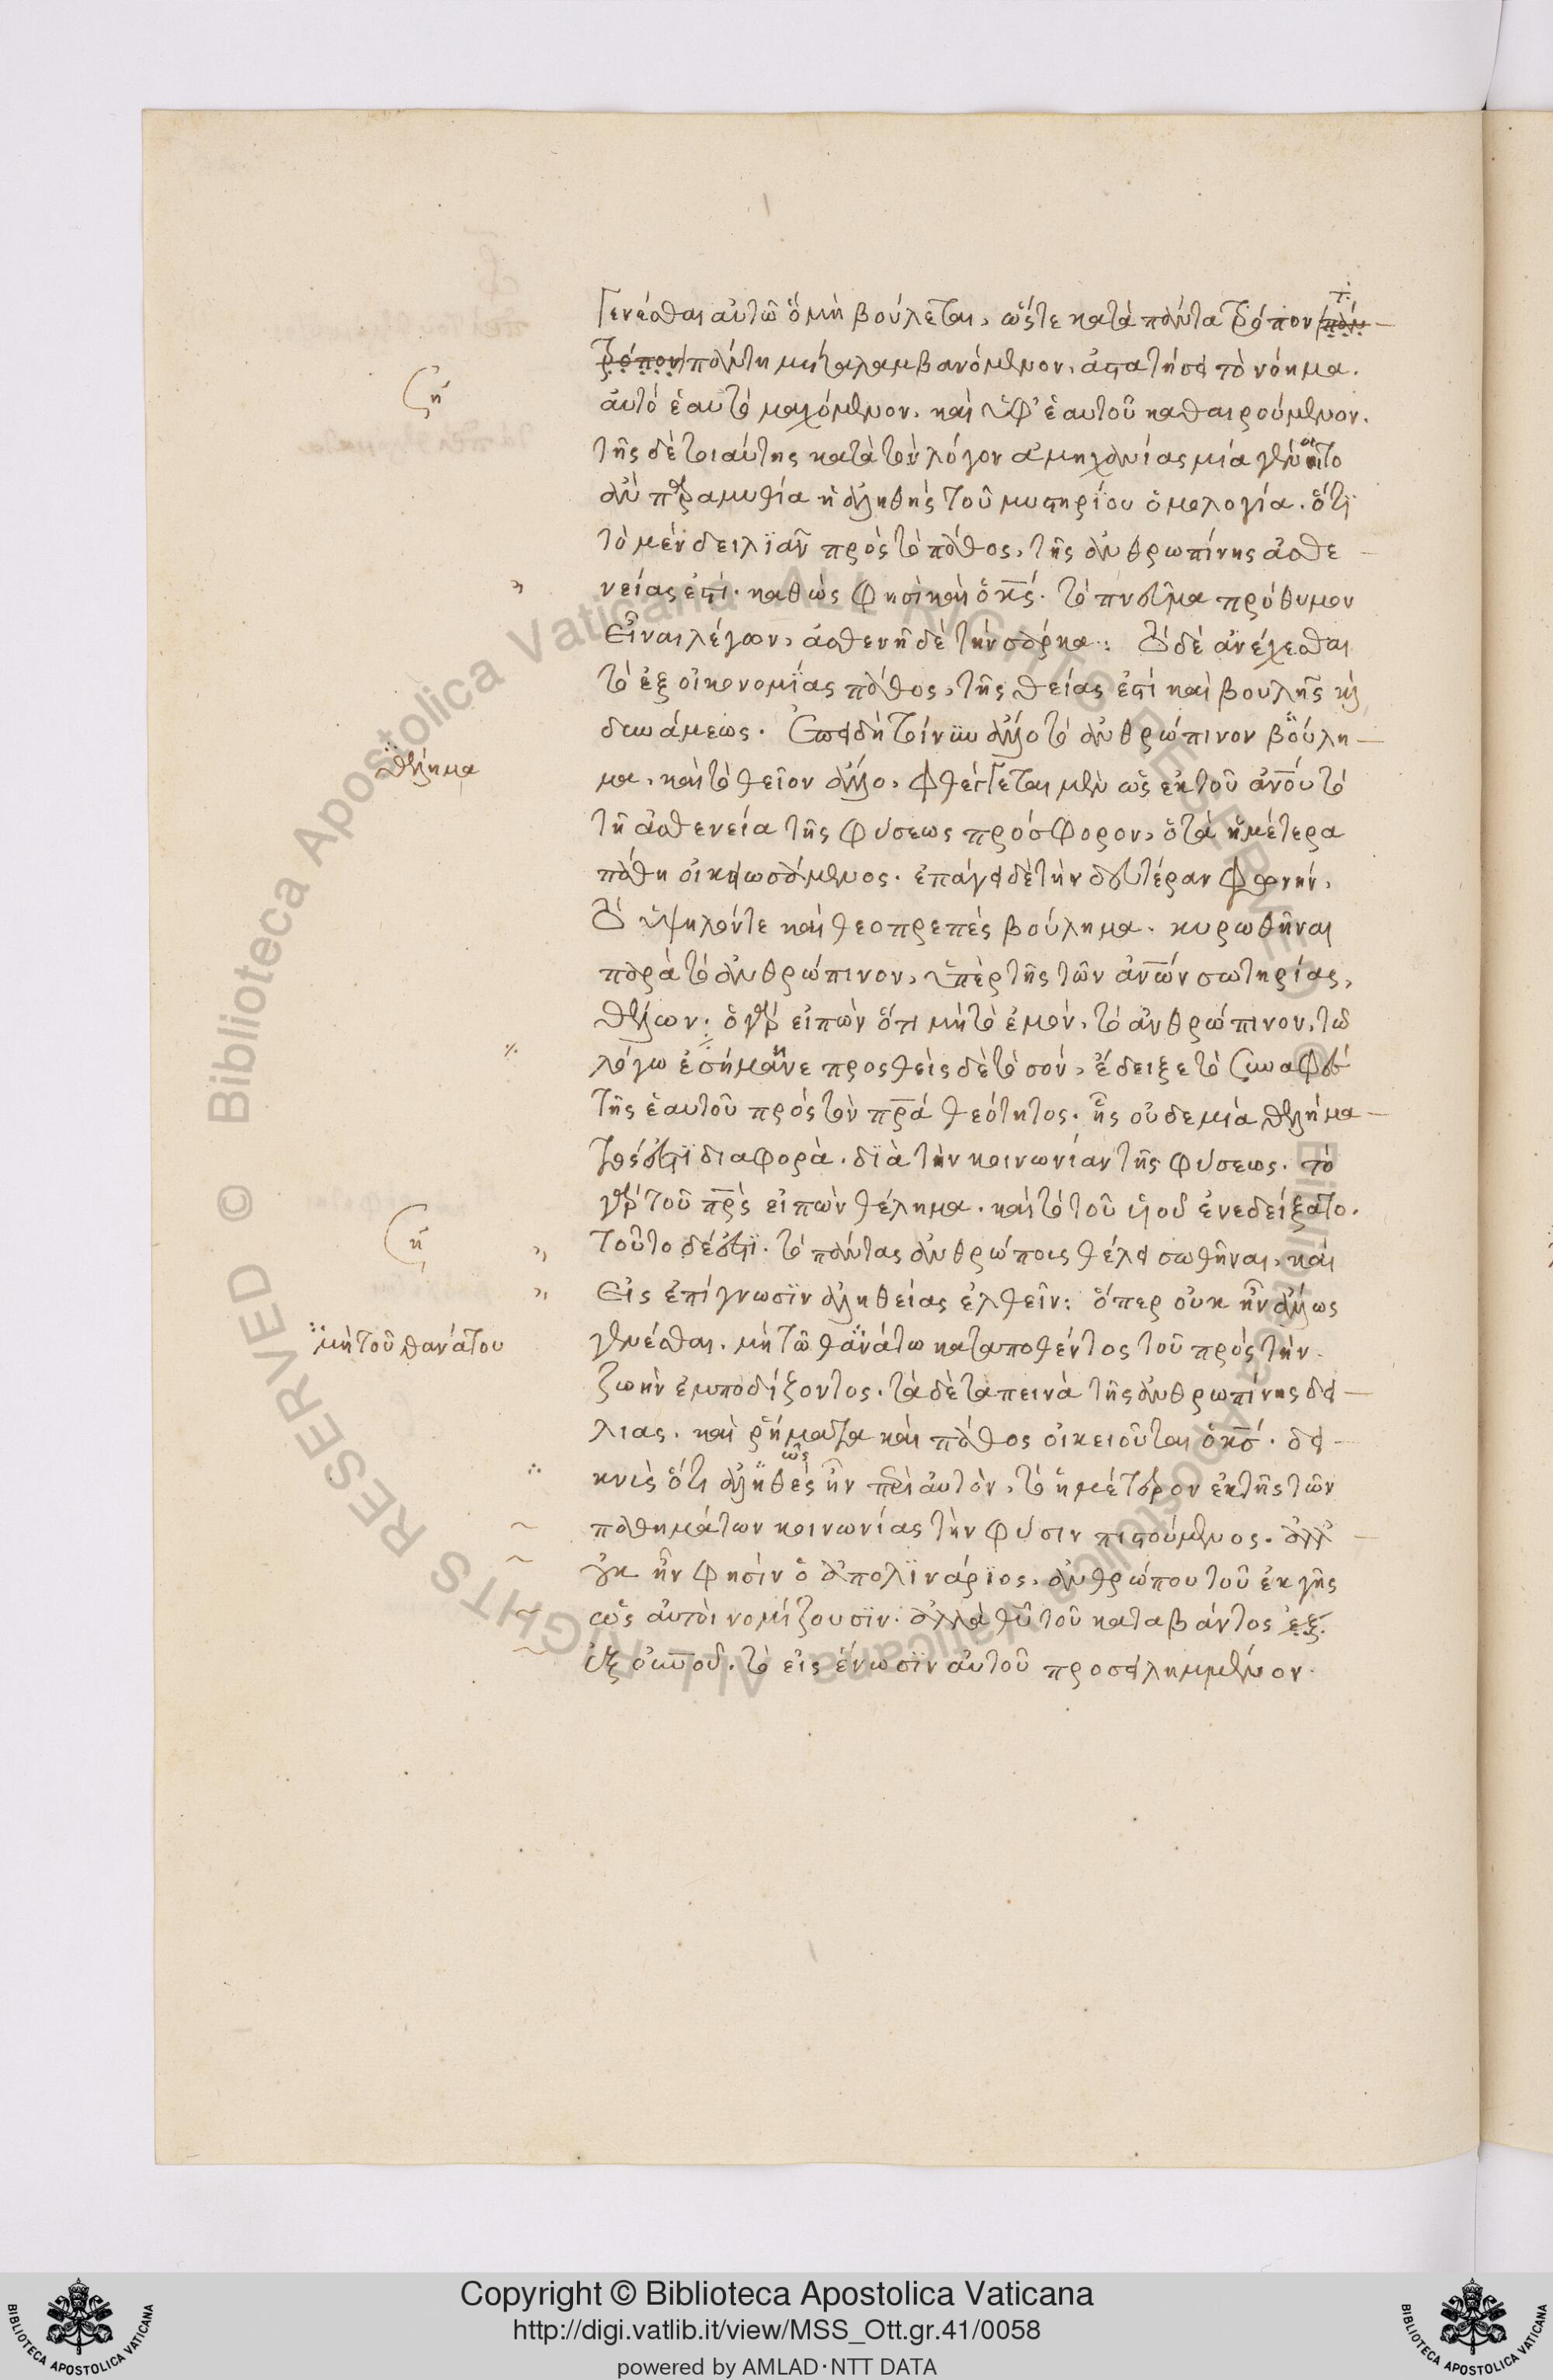 γενέσθαι αὐτῶ ὅ μὴ βούλεται, ὥστε κατὰ πάντα τρόπον πάν
τρόπον πάντη μεταλαμβανόμενον, ἀπατήσει τὸ νόημα.
ζη
αὐτὸ ἑαυτῶ μαχόμενον. καὶ ὑφ' ἑαυτοῦ καθαιρούμενον.
τῆς δὲ τοιαύτης κατὰ τὸν λόγον ἀμηχανίας μία γένοιτο
ἂν παραμυθία ἡ ἀληθὴς τοῦ μυστηρίου ὁμολογία. ὅτι
τὸ μὲν δειλιᾶν πρὸς τὸ πάθος, τῆς ἀνθρωπίνης ἀσθε
νείας ἐστὶ. καθὼς φησὶ καὶ ὁ κς. τὸ πνεῦμα πρόθυμον
εἶναι λέγων, ἀσθενῆ δὲ τὴν σάρκα: τὸ δὲ ἀνέχεσθαι
τὸ ἐξ οἰκονομίας πάθος, τῆς θείας ἐστὶ καὶ βουλῆς κὶ
δυνάμεως. ἐπειδὴ τοίνυν ἄλλο τὸ ἀνθρώπινον βούλη
θέλημα
μα, καὶ τὸ θεῖον ἄλλο, φθέγγεται μὲν ὡς ἐκ τοῦ ἀνου τὸ
τῆ ἀσθενεία τῆς φύσεως πρόσφορον, ὁ τὰ ἡμέτερα
πάθη οἰκειωσάμενος. ἐπάγει δὲ τὴν δευτέραν φωνήν,
τὸ ὑψηλόν τε καὶ θεοπρεπὲς βούλημα. κυρωθῆναι
παρὰ τὸ ἀνθρώπινον, ὑπὲρ τῆς τῶν ἀνων σωτηρίας,
θέλων. ὁ γὰρ εἰπὼν ὅτι μὴ τὸ ἐμὸν, τὸ ἀνθρώπινον, τῶ
λόγω ἐσήμανε προςθεὶς δὲ τὸ σόν, ἔδειξε τὸ συναφὲς
τῆς ἑαυτοῦ πρὸς τὸν πρα θεότητος. ἧς οὐδεμία θελήμα
τος ἐστὶ διαφορὰ. διὰ τὴν κοινωνίαν τῆς φύσεως. τὸ
γὰρ τοῦ πρς εἰπὼν θέλημα. καὶ τὸ τοῦ υἱοῦ ἐνεδείξατο.
ζη
τοῦτο δέ ἐστὶ. τὸ πάντας ἀνθρώποις θέλει σωθῆναι, καὶ
εἰς ἐπίγνωσιν ἀληθείας ἐλθεῖν: ὅπερ οὐκ ἦν ἄλλως
μὴ τοῦ θανάτου
γενέσθαι. μὴ τῶ θανάτω καταποθέντος τοῦ πρὸς τὴν
ζωὴν ἐμποδίζοντος. τὰ δὲ ταπεινὰ τῆς ἀνθρωπίνης δει
λιας. καὶ ῥήματα καὶ πάθος οἰκειοῦται ὁ κσ. δει
ῶς
κνὺς ὅτι ἀληθὲς ἦν περὶ αὐτὸν, τὸ ἡμέτερον ἐκ τῆς τῶν
παθημάτων κοινωνίας τὴν φύσιν πιστούμενος. ἀλλ'
οὐκ ἦν φησὶν ὁ ἀπολινάριος, ἀνθρώπου τοῦ ἐκ γῆς
ὡς αὐτοὶ νομίζουσιν. ἀλλὰ θυ τοῦ καταβάντος ἐξ
ἐξ οὐνοῦ. τὸ εἰς ἕνωσιν αὐτοῦ προσειλημμένον
Copyright © Biblioteca Apostolica Vaticana
http://digi.vatlib.it/view/MSS_Ott.gr.41/0058
powered by AMLAD·NTT DATA